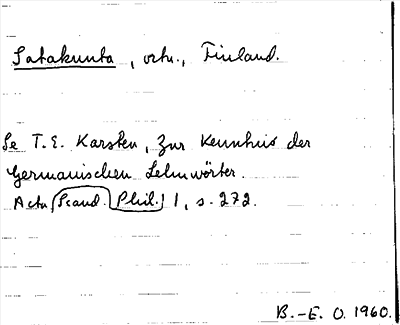 Satakunta, ortn., Finland.
Se T.E. Karsten, Zur Kenntnis der
Germanischen Lehnwörter.
Acta Scand. Phil. 1, s. 272.
B.-E. O. 1960.